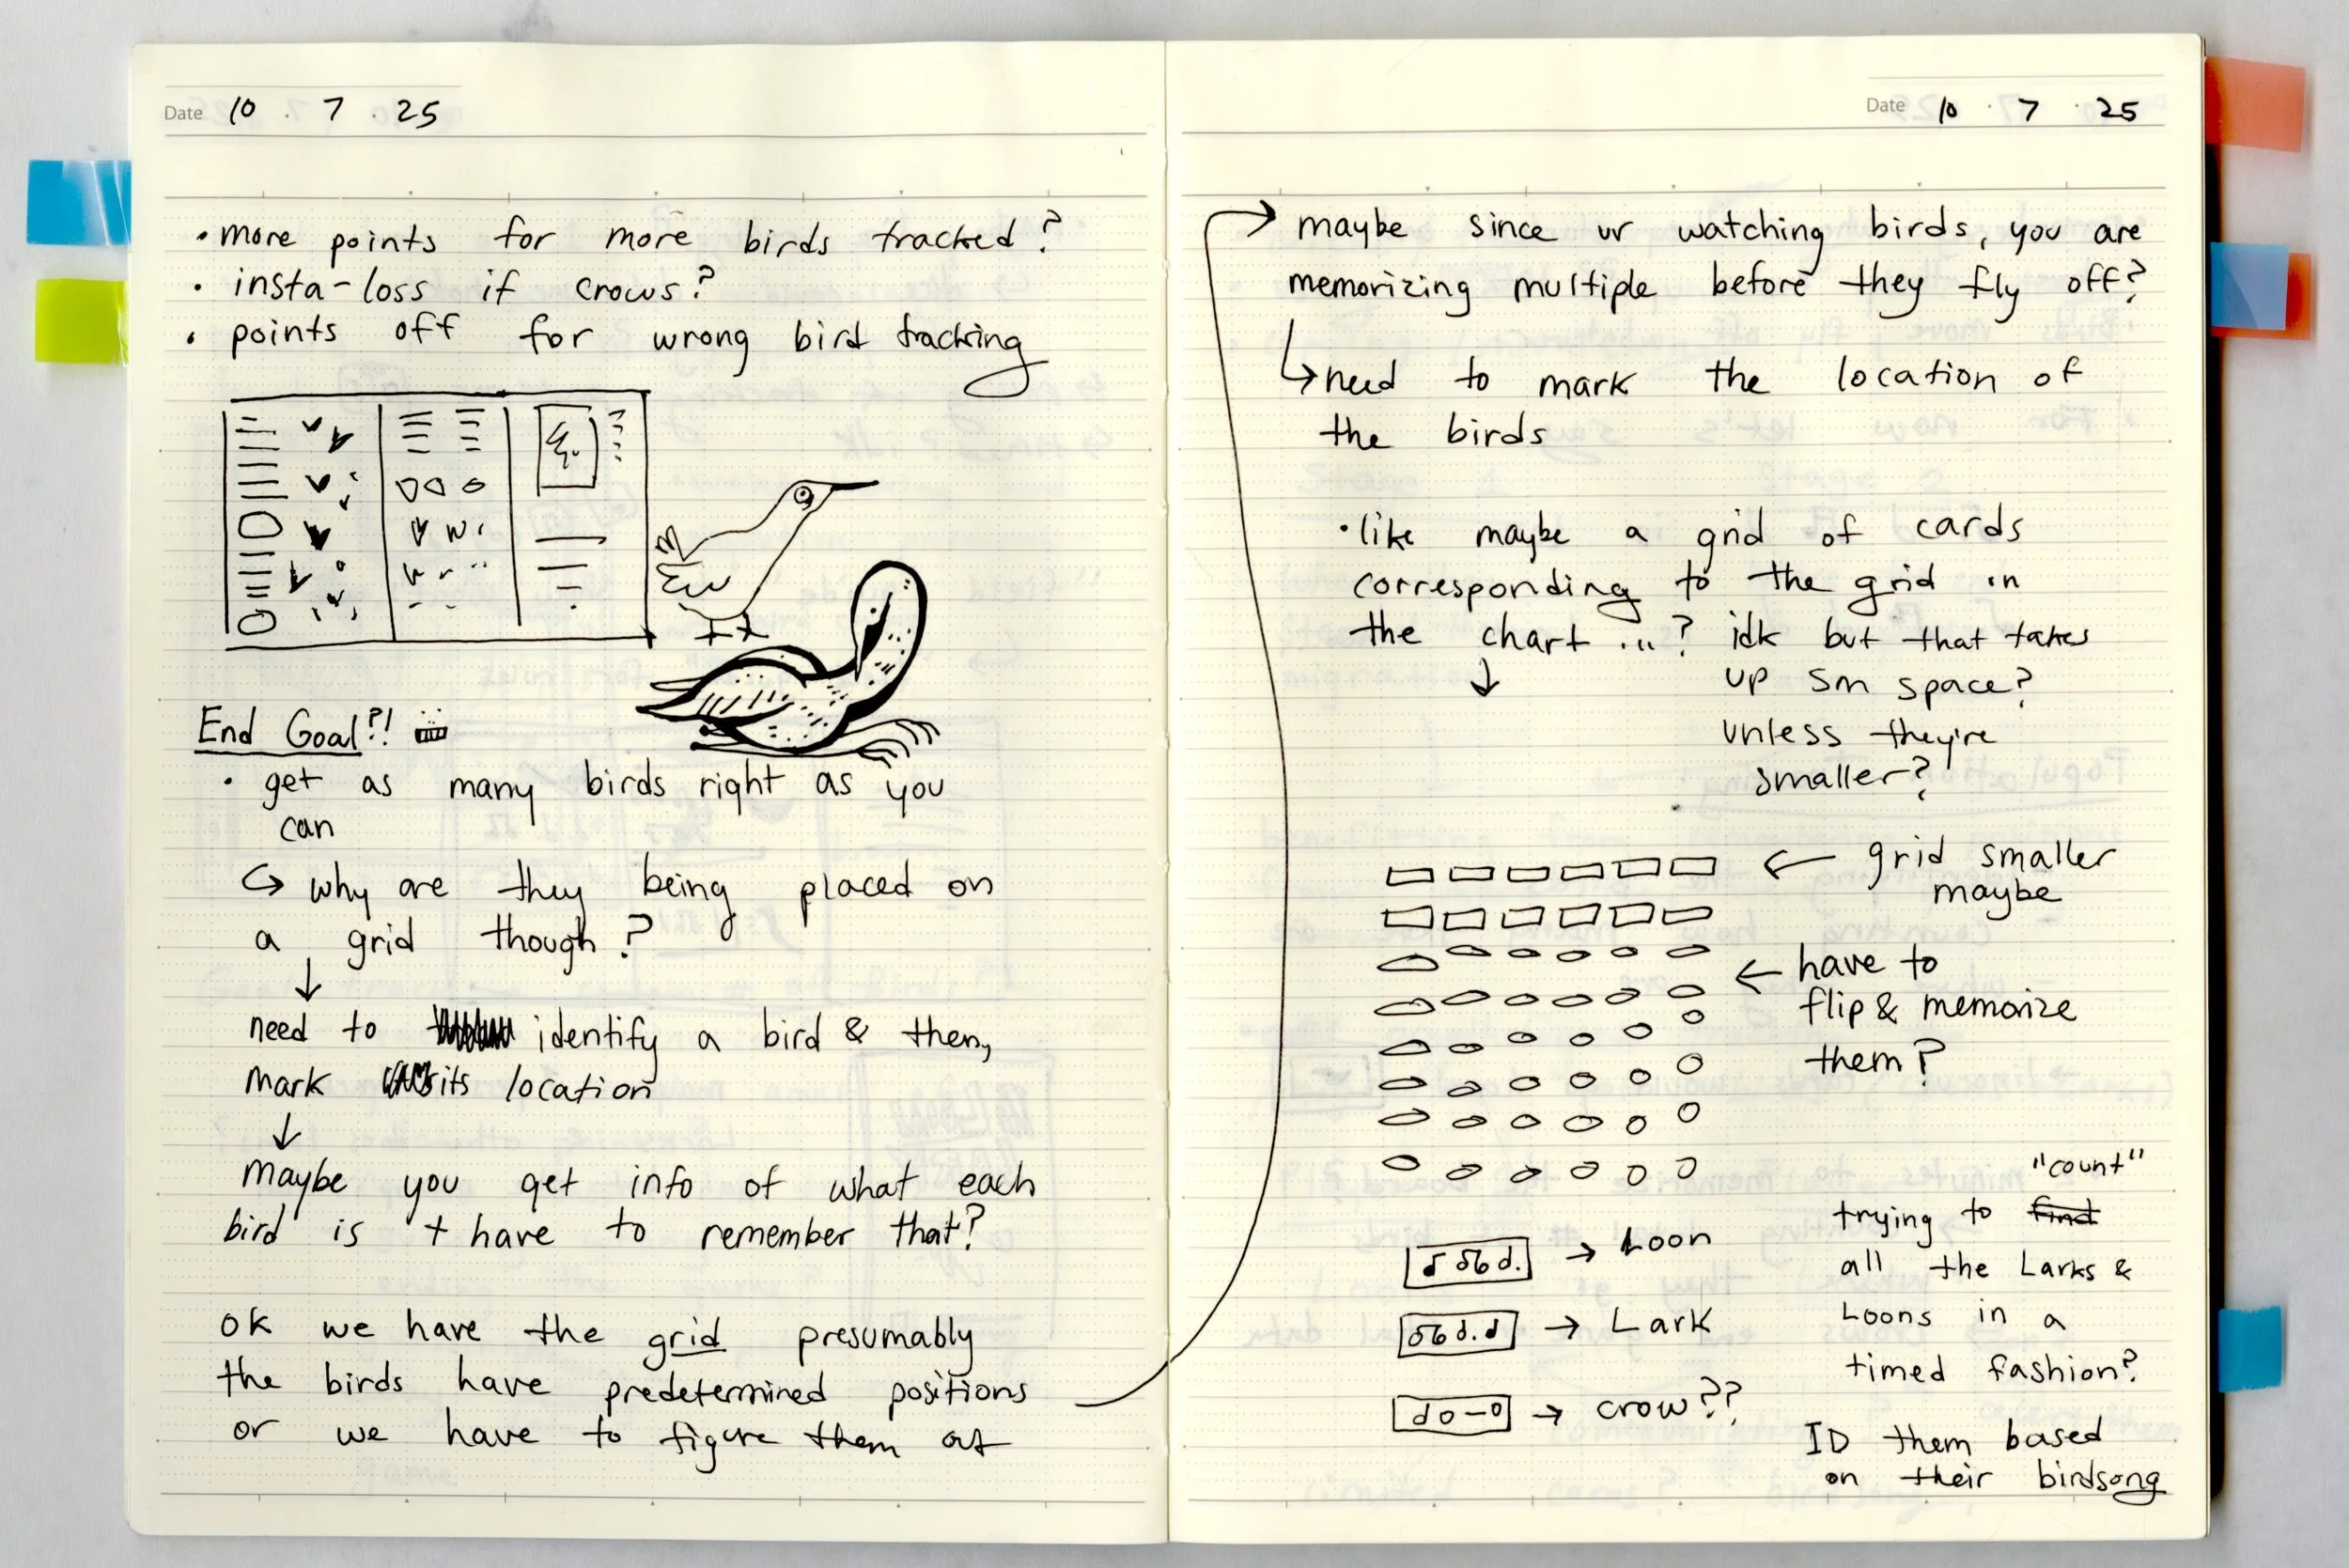 Date 10 . 7 . 25
• more points for more birds tracked?
• insta-loss if crows?
• points off for wrong bird tracking
End Goal?!
• get as many birds right as you
can
↪ why are they being placed on
a grid though?
↓
need to identify a bird & then,
mark its location
↓
maybe you get info of what each
bird is + have to remember that?
ok we have the grid presumably
the birds have predetermined positions
or we have to figure them out
Date 10 . 7 . 25
→ maybe since ur watching birds, you are
memorizing multiple before they fly off?
↳ need to mark the location of
the birds
• like maybe a grid of cards
corresponding to the grid in
the chart ...? idk but that takes
↓
up sm space?
unless they're
smaller?
← grid smaller
maybe
← have to
flip & memorize
them?
"count"
trying to find
all the Larks &
Loons in a
timed fashion?
→ Loon
→ Lark
→ crow??
ID them based
on their birdsong